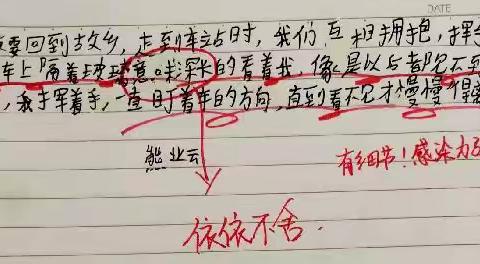 DATE
要回到故乡,走到车站时,我们互相拥抱,挥
车上隔着玻璃意味深长的看着我,像是以后都见不到
,我挥着手,一直盯着车的方向,直到看不见才慢慢得离
熊业云
有细节!感染力
依依不舍.